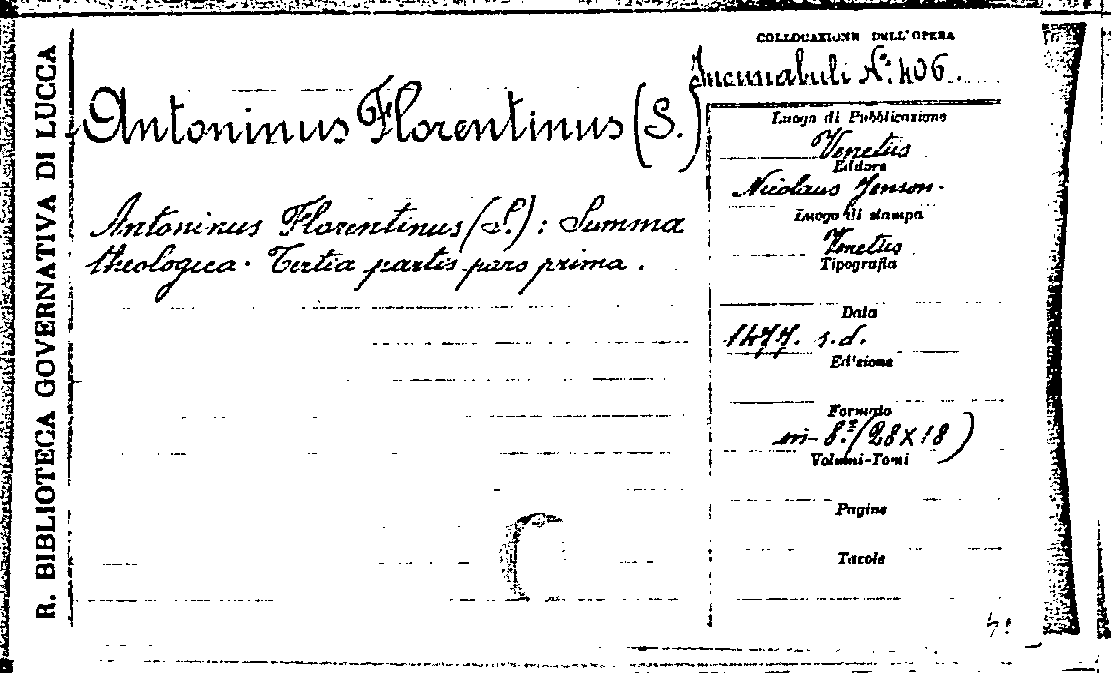 R. BIBLIOTECA GOVERNATIVA DI LUCCA
COLLOCAZIONE DELL'OPERA
Incunabuli N.º 406.
Antoninus Florentinus (S.)
Antoninus Florentinus (S.): Summa
theologica. Tertia partis pars prima.
Luogo di Pubblicazione
Venetus
Editore
Nicolaus Jenson.
Luogo di stampa
Venetus
Tipografia
Data
1477. s.d.
Edizione
Formato
in-8.º (28×18)
Volumi-Tomi
Pagine
Tavole